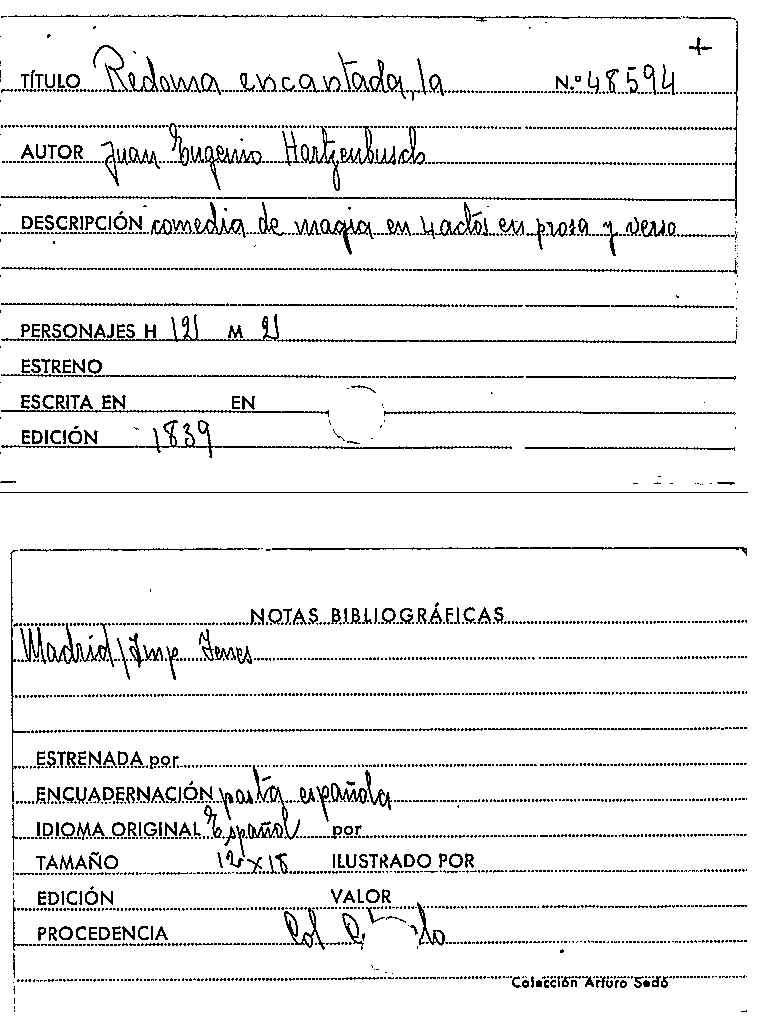 +
TÍTULO Redoma encantada, la N.º 48594
AUTOR Juan Eugenio Hartzenbusch
DESCRIPCIÓN comedia de magia en 4 actos en prosa y verso
PERSONAJES H 12 M 2
ESTRENO
ESCRITA EN EN
EDICIÓN 1839
NOTAS BIBLIOGRÁFICAS
Madrid/Imp Yenes
ESTRENADA por
ENCUADERNACIÓN pasta española
IDIOMA ORIGINAL Español por
TAMAÑO 12 x 18 ILUSTRADO POR
EDICIÓN VALOR
PROCEDENCIA Col
Colección Arturo Sedó